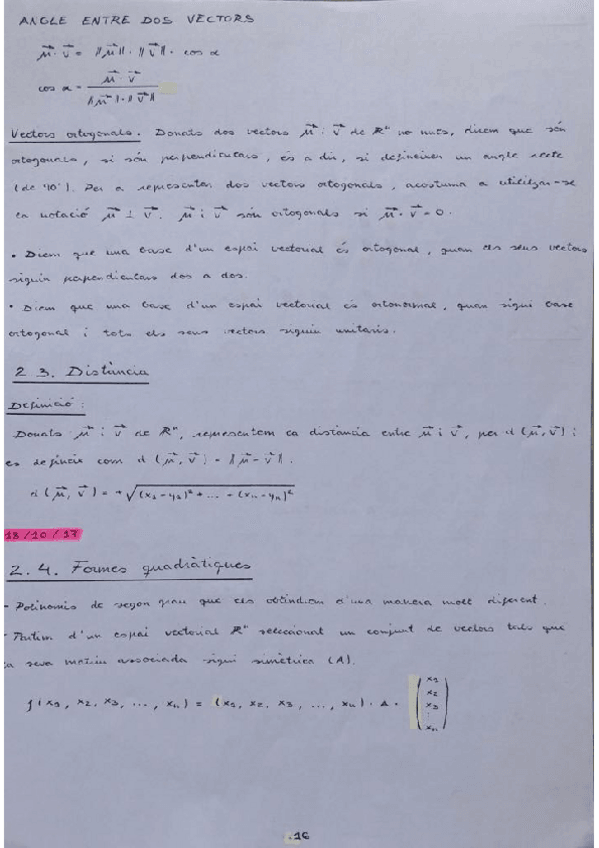 ANGLE ENTRE DOS VECTORS
μ⃗ · v⃗ = ‖μ⃗‖ · ‖v⃗‖ · cos α
cos α = μ⃗ · v⃗ / ‖μ⃗‖ · ‖v⃗‖
Vectors ortogonals. Donats dos vectors μ⃗ i v⃗ de ℝⁿ no nuls, diem que són
ortogonals, si són perpendiculars, és a dir, si defineixen un angle recte
(de 90°). Per a representar dos vectors ortogonals, acostuma a utilitzar-se
la notació μ⃗ ⊥ v⃗. μ⃗ i v⃗ són ortogonals si μ⃗ · v⃗ = 0.
• Diem que una base d'un espai vectorial és ortogonal, quan els seus vectors
siguin perpendiculars dos a dos.
• Diem que una base d'un espai vectorial és ortonormal, quan sigui base
ortogonal i tots els seus vectors siguin unitaris.
2.3. Distància
Definició:
Donats μ⃗ i v⃗ de ℝⁿ, representem la distància entre μ⃗ i v⃗, per d(μ⃗, v⃗) i
es defineix com d(μ⃗, v⃗) = ‖μ⃗ - v⃗‖.
d(μ⃗, v⃗) = +√(x₁-y₁)² + ... + (xₙ-yₙ)²
2.4. Formes quadràtiques
- Polinomis de segon grau que els obtindrem d'una manera molt diferent.
- Partim d'un espai vectorial ℝⁿ seleccionat un conjunt de vectors tals que
la seva matriu associada sigui simètrica (A).
f(x₁, x₂, x₃, ..., xₙ) = (x₁, x₂, x₃, ..., xₙ) · A ·
x₁
x₂
x₃
⋮
xₙ
.16